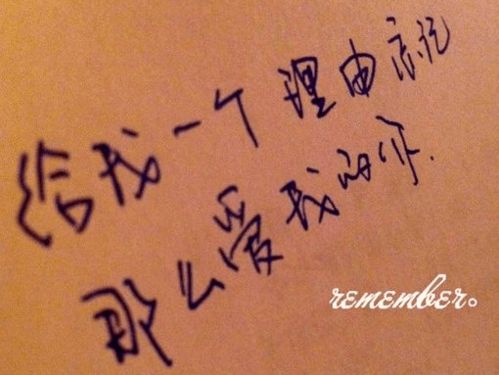 给我一个理由忘记
那么爱我的你.
remember。